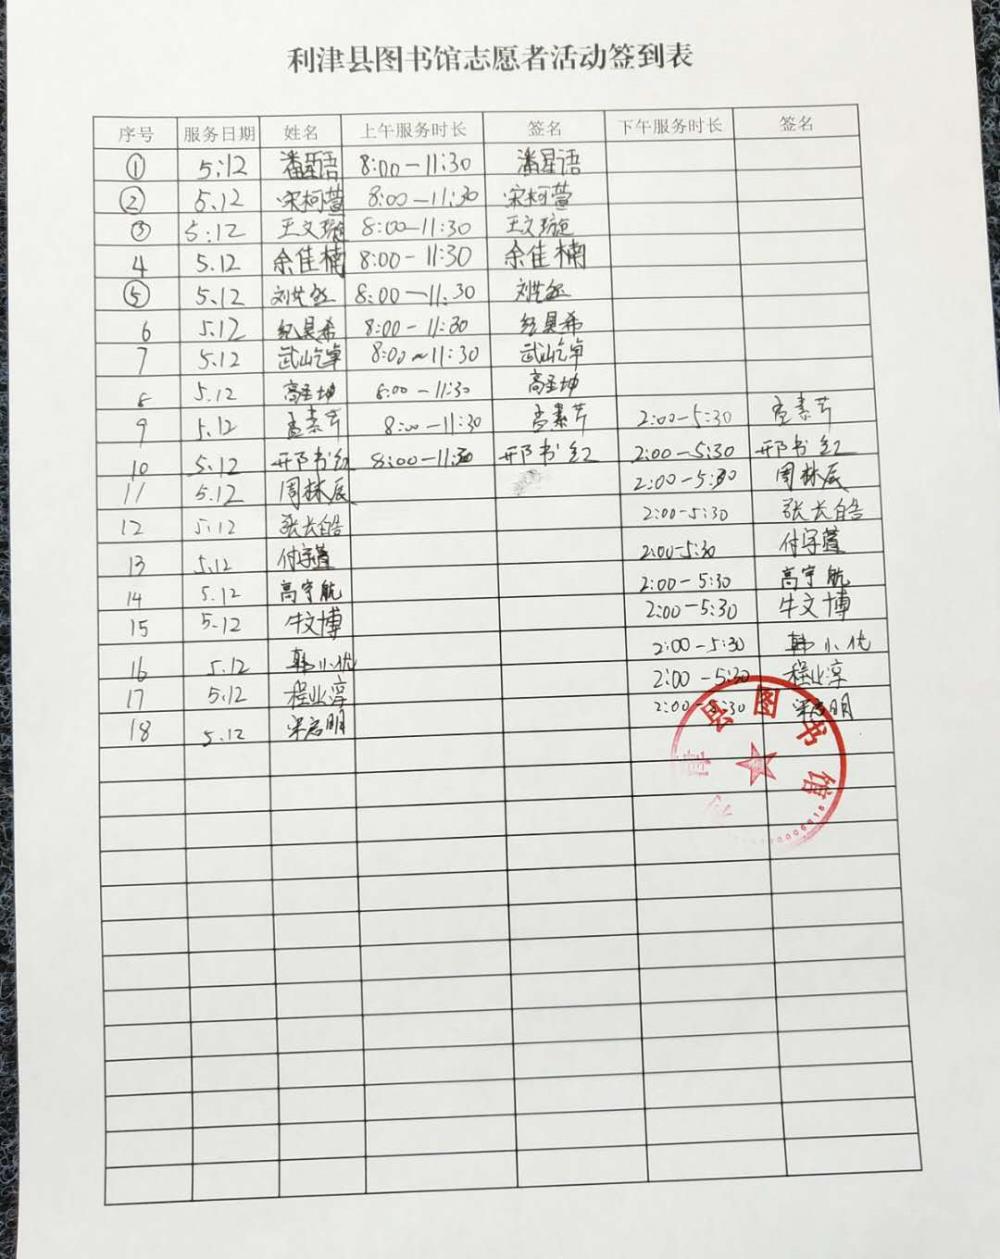 利津县图书馆志愿者活动签到表
序号 服务日期 姓名 上午服务时长 签名 下午服务时长 签名
① 5.12 潘星语 8:00-11:30 潘星语
② 5.12 宋柯萱 8:00-11:30 宋柯萱
③ 5.12 王文璇 8:00-11:30 王文璇
4 5.12 余佳楠 8:00-11:30 余佳楠
⑤ 5.12 8:00-11:30
6 5.12 纪昊希 8:00-11:30 纪昊希
7 5.12 8:00~11:30
8 5.12 高圣坤 8:00-11:30 高圣坤
9 5.12 孟素芹 8:00-11:30 孟素芹 2:00-5:30 孟素芹
10 5.12 邢书红 8:00-11:30 邢书红 2:00-5:30 邢书红
11 5.12 周林辰 2:00-5:30 周林辰
12 5.12 张长皓 2:00-5:30 张长皓
13 5.12 付宇萱 2:00-5:30 付宇萱
14 5.12 高宇航 2:00-5:30 高宇航
15 5.12 牛文博 2:00-5:30 牛文博
16 5.12 韩小优 2:00-5:30 韩小优
17 5.12 程业淳 2:00-5:30 程业淳
18 5.12 梁启明 2:00-5:30 梁启明
县图书馆